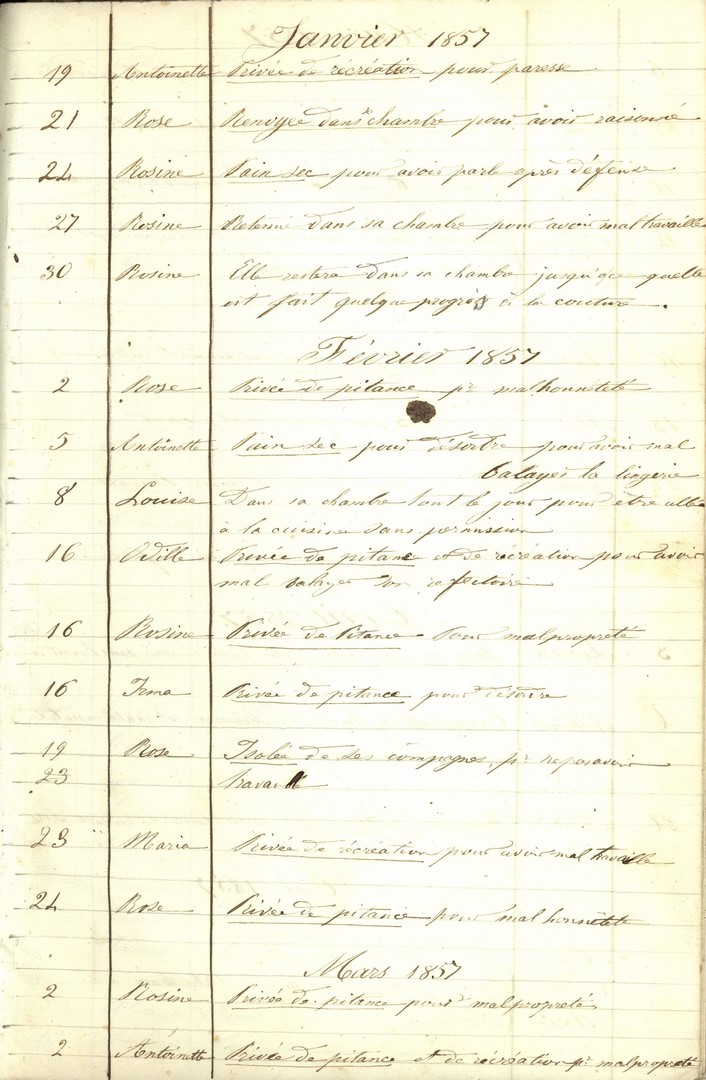 Janvier 1857
19 Antoinette Privée de récréation pour paresse
21 Rose Renvoyée dans chambre pour avoir raisonné
24 Rosine Pain sec pour avoir parlé après défense
27 Rosine Retenue dans sa chambre pour avoir mal travaillé
30 Rosine Elle restera dans sa chambre jusqu'à ce quelle
eit fait quelque progrès à la couture.
Février 1857
2 Rose Privée de pitance pr malhonnêteté
5 Antoinette Pain sec pour désordre pour avoir mal
balayés la lingerie
8 Louise Dans sa chambre tout le jour pour être allée
à la cuisine sans permission
16 Odille Privée de pitance et de récréation pour avoir
mal balayer son refectoire
16 Rosine Privée de Pitance Pour malpropreté
16 Irma Privée de pitance pour désordre
19 Rose Isolée de ses compagnes, pr ne pas avoir
23 travaillé
23 Maria Privée de récréation pour avoir mal travaillé
24 Rose Privée de pitance pour malhonnêteté
Mars 1857
2 Rosine Privée de pitance pour malpropreté
2 Antoinette Privée de pitance et de récréation pr malpropreté